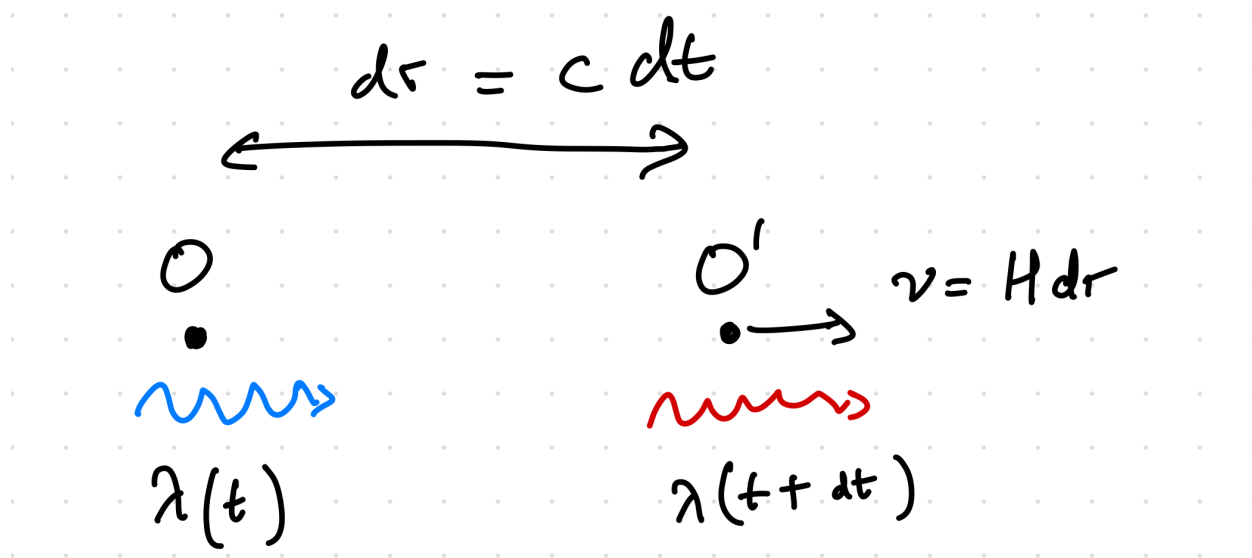 dr = c dt
O O′ v = H dr
λ(t) λ(t + dt)